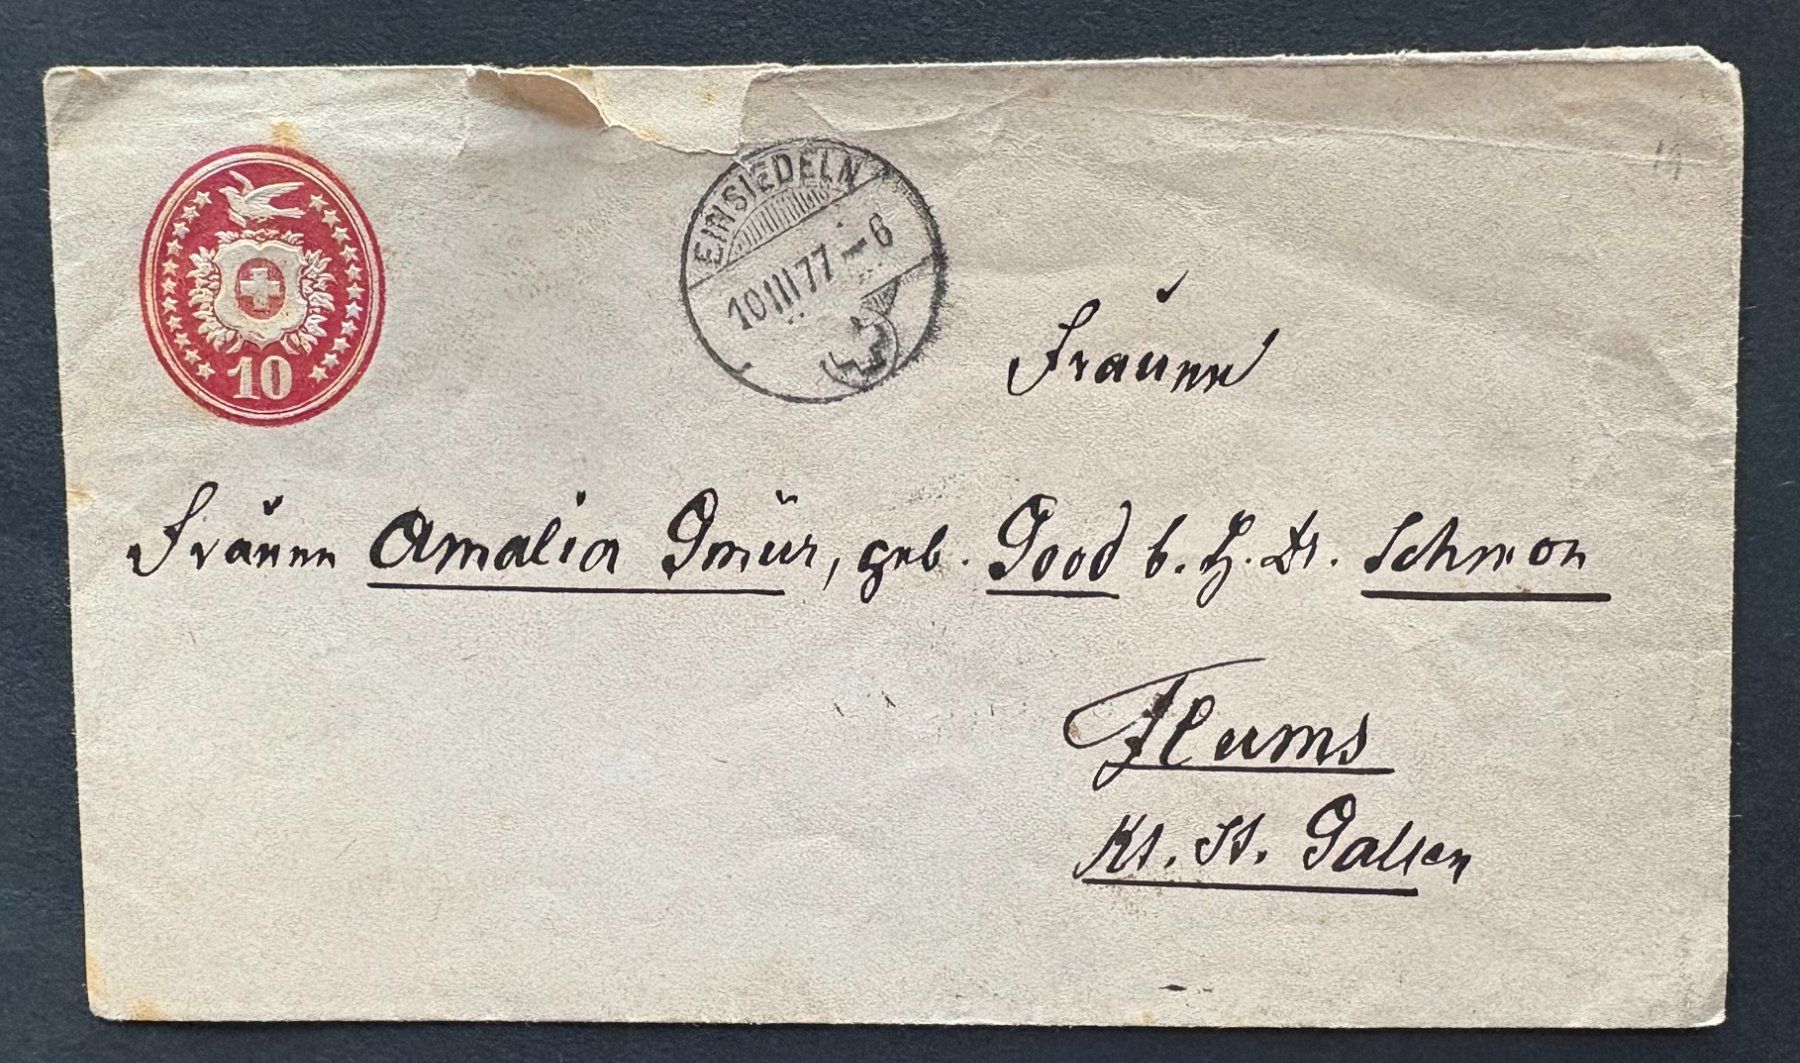 10
EINSIEDELN
10 III 77 - 6
Frauen
Frauen Amalia Gmür, geb. Good b. H. Dr. Schmon
Flums
Kt. St. Gallen